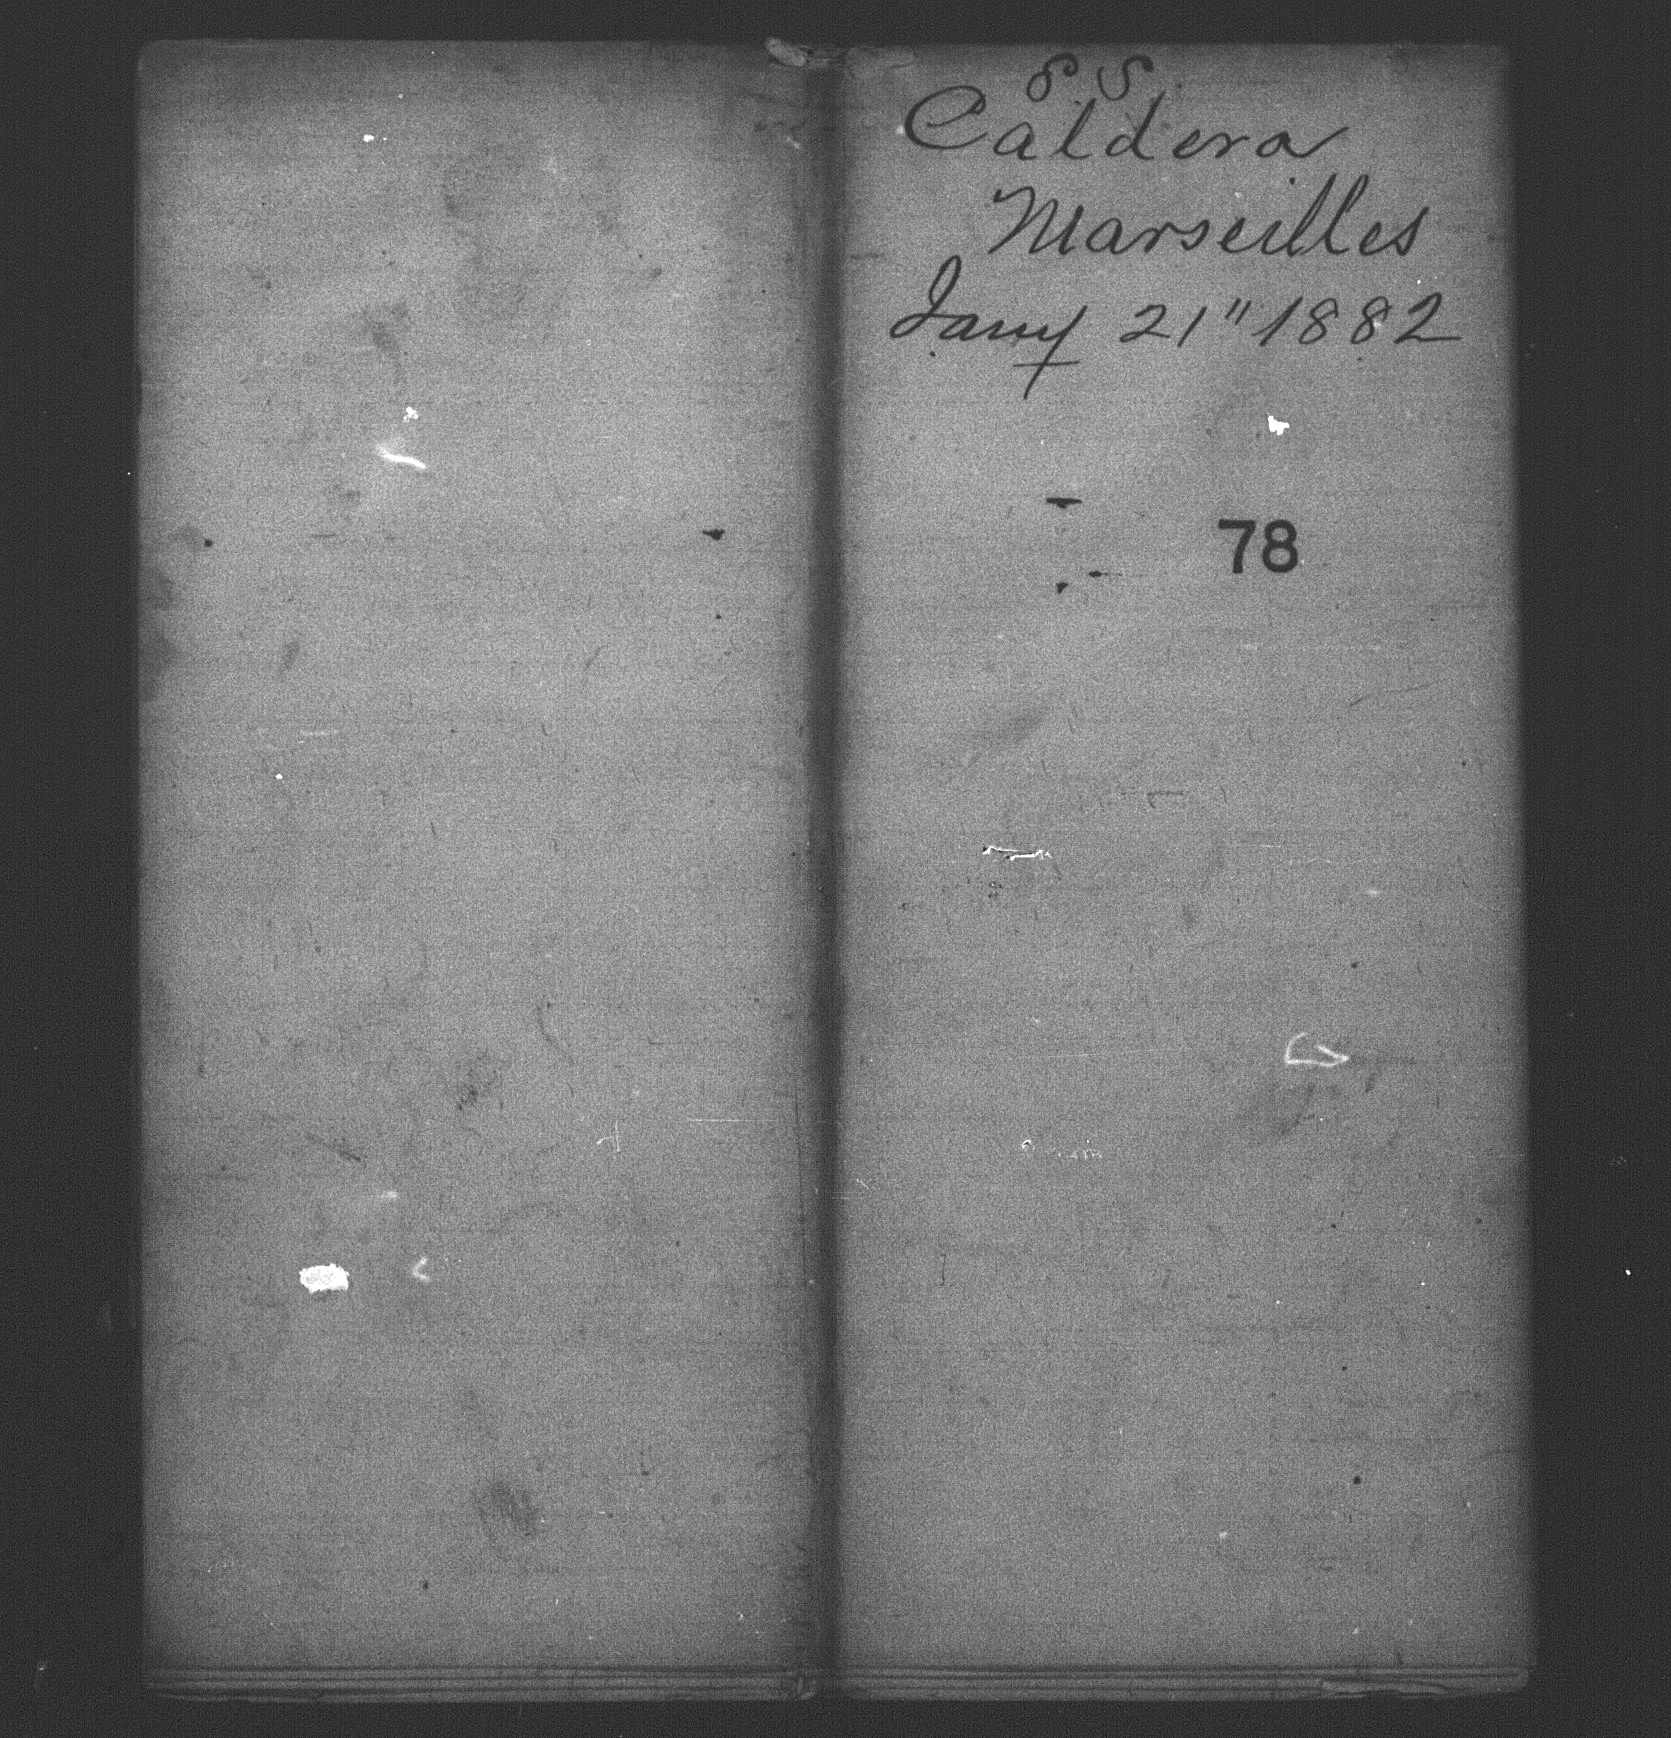 S S
Caldera
Marseilles
Jany 21" 1882
78